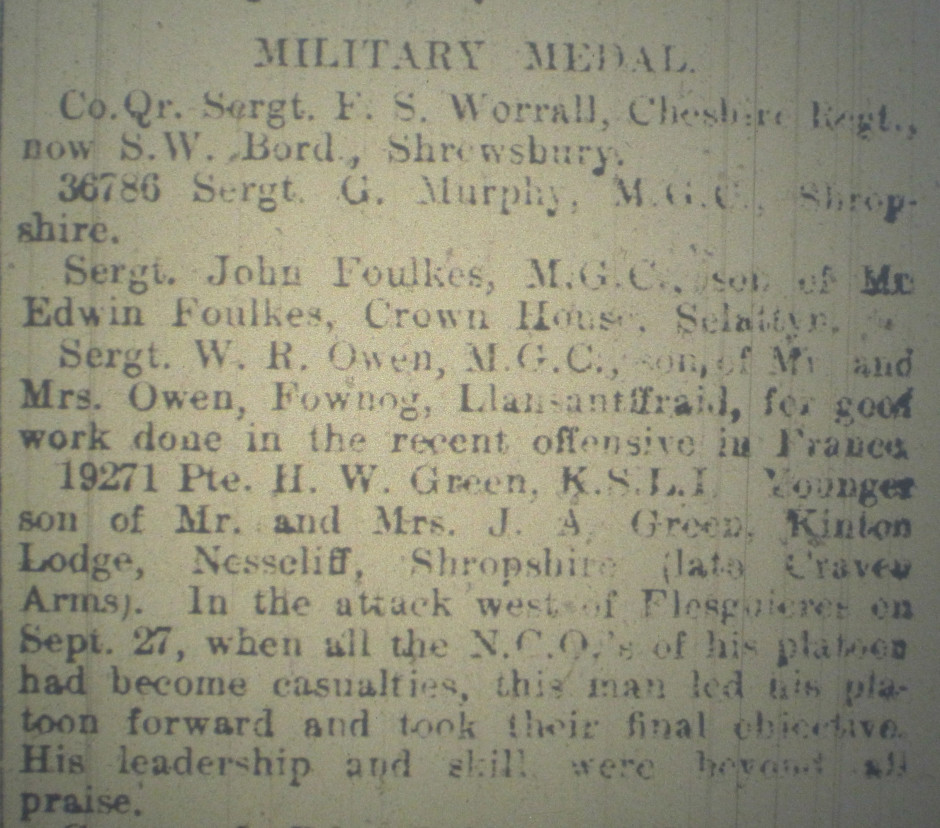 MILITARY MEDAL.
Co.Qr. Sergt. F. S. Worrall, Cheshire Regt.,
now S.W. Bord., Shrewsbury.
36786 Sergt. G. Murphy, M.G.C., Shrop-
shire.
Sergt. John Foulkes, M.G.C., son of Mr.
Edwin Foulkes, Crown House, Selattyn.
Sergt. W. R. Owen, M.G.C., son of Mr. and
Mrs. Owen, Fownog, Llansantffraid, for good
work done in the recent offensive in France.
19271 Pte. H. W. Green, K.S.L.I. Younger
son of Mr. and Mrs. J. A. Green, Kinton
Lodge, Nesscliff, Shropshire (late Craven
Arms). In the attack west of Flesquieres on
Sept. 27, when all the N.C.O.'s of his platoon
had become casualties, this man led his pla-
toon forward and took their final objective.
His leadership and skill were beyond all
praise.